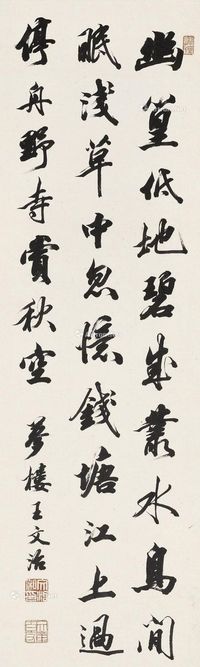 幽篁低地碧成叢水鳥閒
眠淺草中忽憶錢塘江上過
停舟野寺賞秋空 夢樓王文治